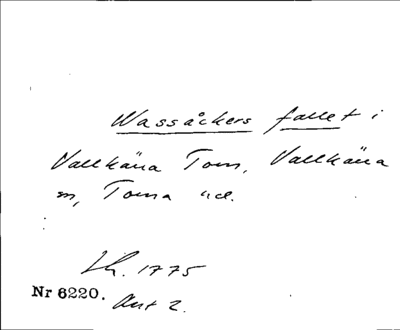 Wassåckers fallet i
Vallkära Torn, Vallkära
sn, Torna hd.
Lh. 1775
Nr 6220.
Akt 2.